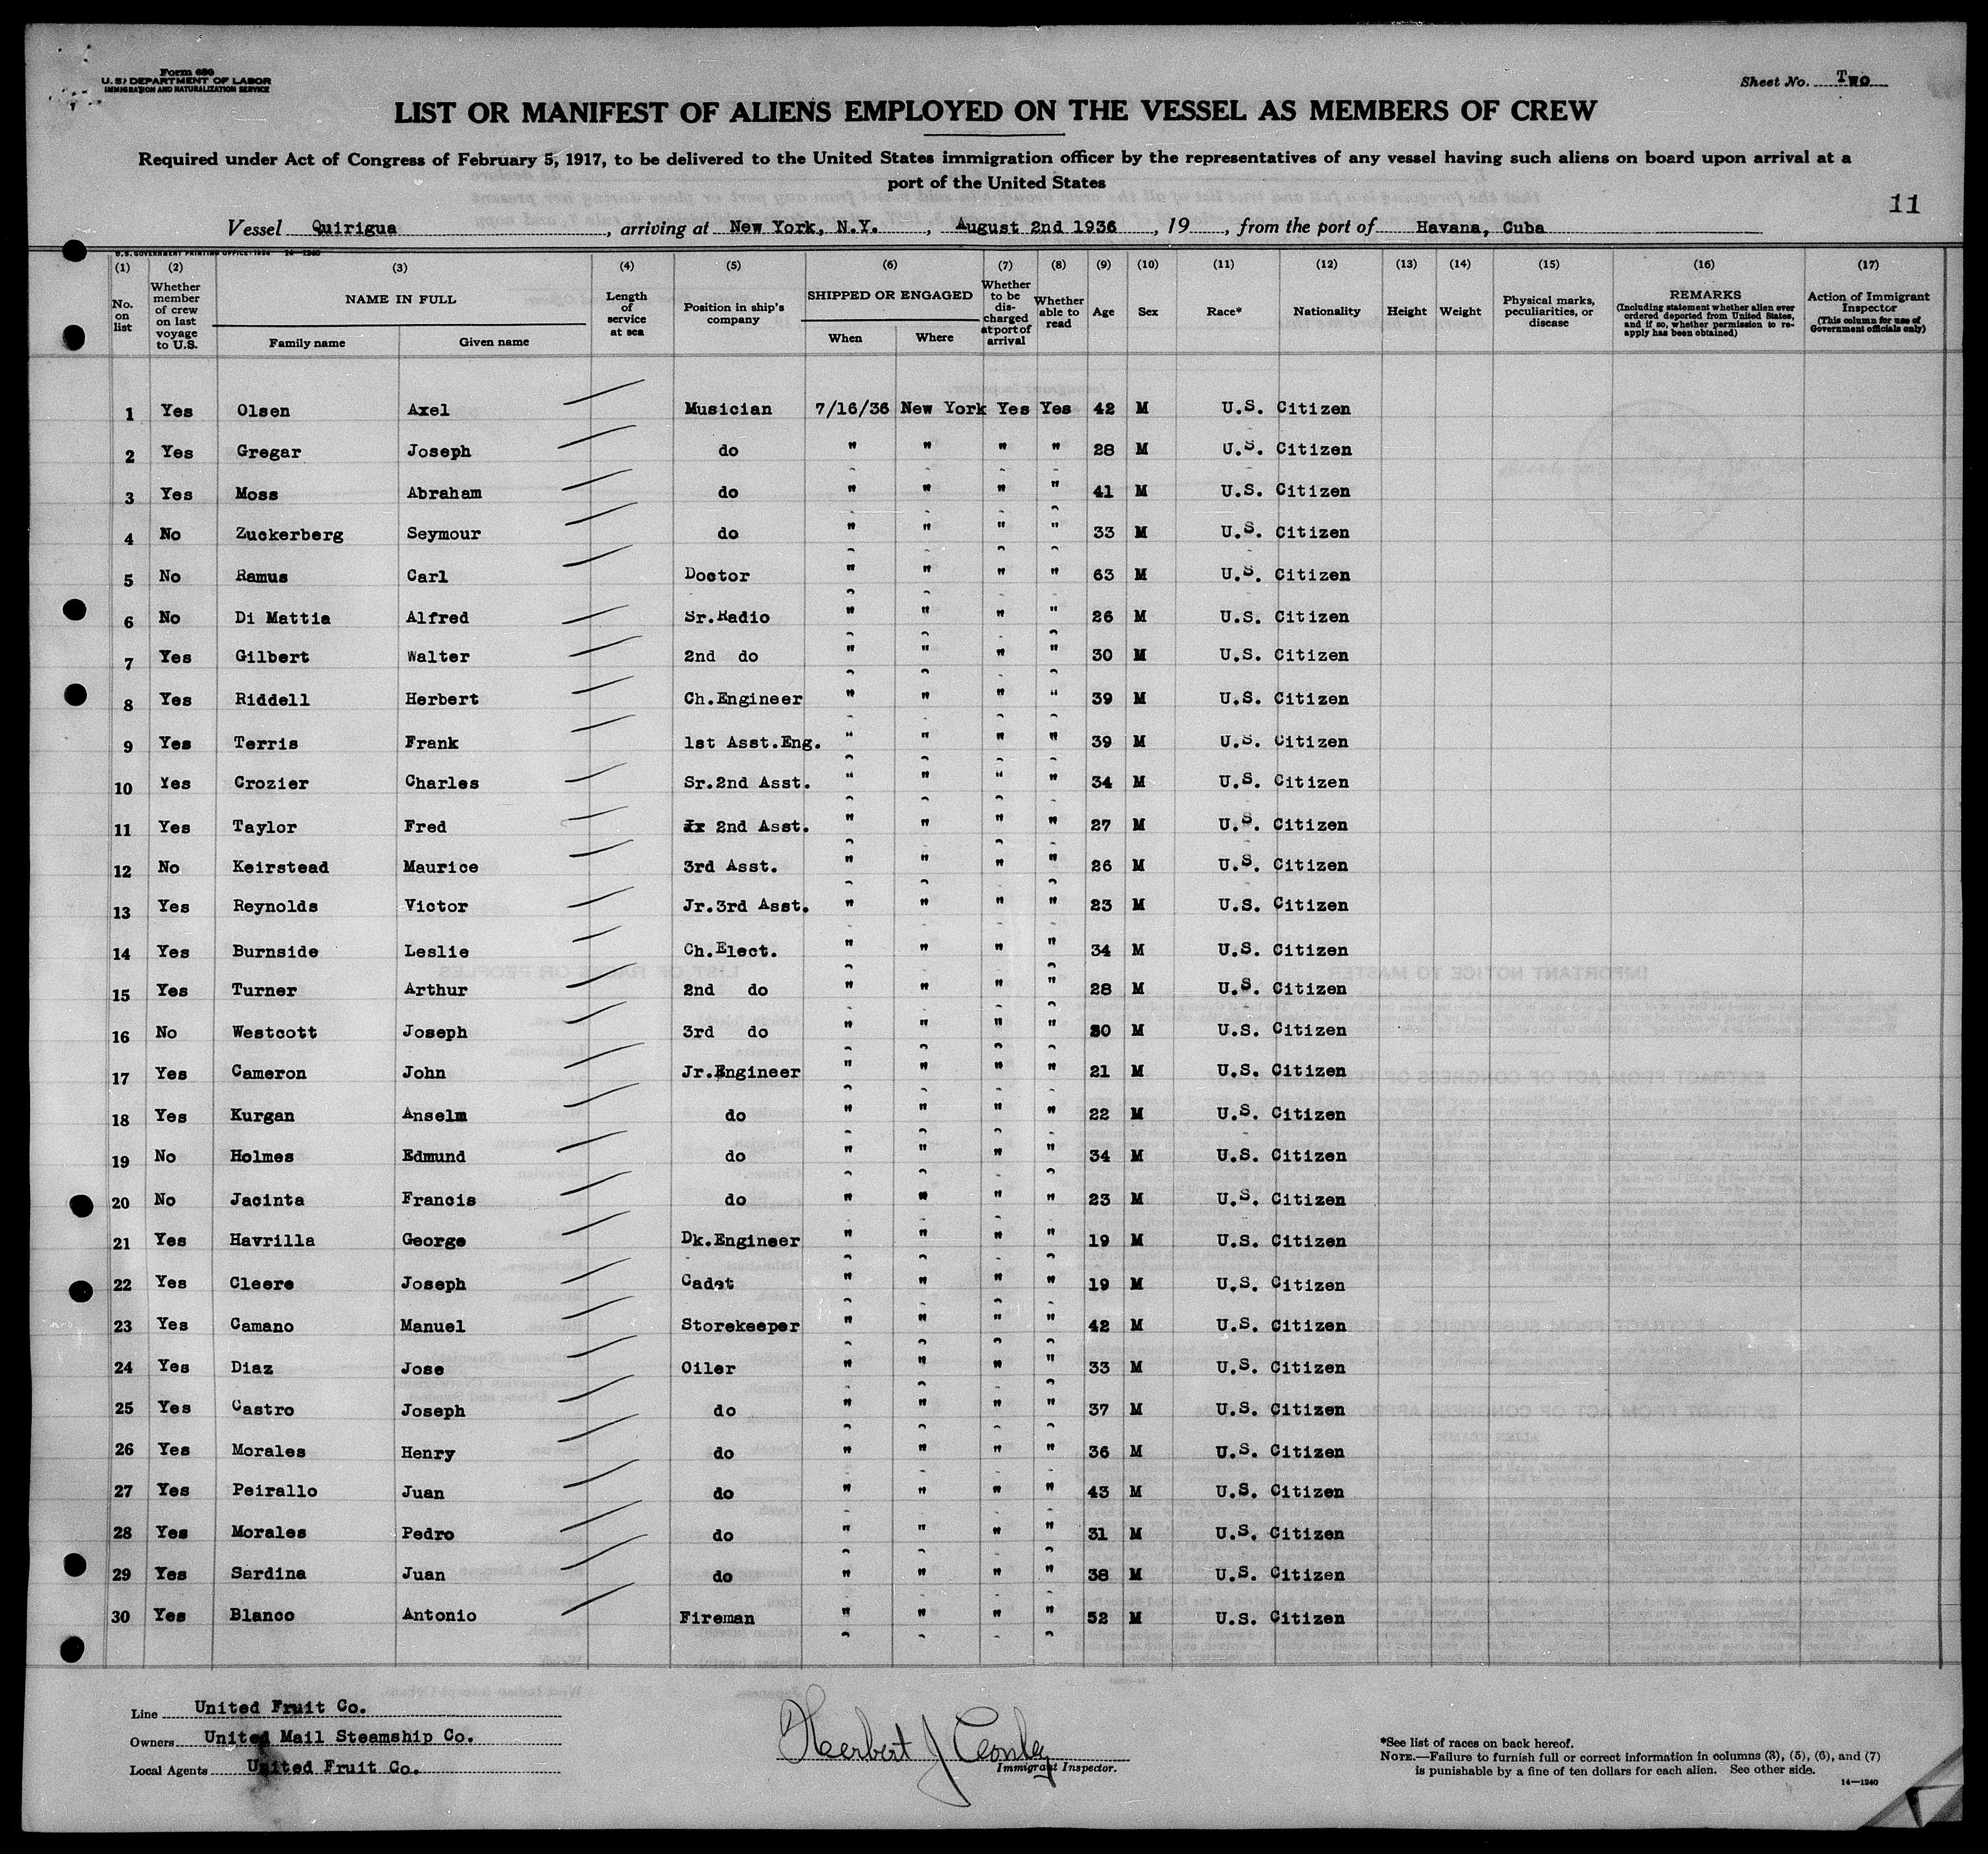 Form 680
U. S. DEPARTMENT OF LABOR
IMMIGRATION AND NATURALIZATION SERVICE
Sheet No. Two
LIST OR MANIFEST OF ALIENS EMPLOYED ON THE VESSEL AS MEMBERS OF CREW
Required under Act of Congress of February 5, 1917, to be delivered to the United States immigration officer by the representatives of any vessel having such aliens on board upon arrival at a
port of the United States
11
Vessel Quirigua, arriving at New York, N.Y., August 2nd 1936, 19, from the port of Havana, Cuba
U. S. GOVERNMENT PRINTING OFFICE: 1934 14—1240
(1) (2) (3) (4) (5) (6) (7) (8) (9) (10) (11) (12) (13) (14) (15) (16) (17)
No. on list
Whether member of crew on last voyage to U.S.
NAME IN FULL
Family name
Given name
Length of service at sea
Position in ship's company
SHIPPED OR ENGAGED
When
Where
Whether to be discharged at port of arrival
Whether able to read
Age
Sex
Race*
Nationality
Height
Weight
Physical marks, peculiarities, or disease
REMARKS
(Including statement whether alien ever ordered deported from United States, and if so, whether permission to reapply has been obtained)
Action of Immigrant Inspector
(This column for use of Government officials only)
1 Yes Olsen Axel Musician 7/16/36 New York Yes Yes 42 M U.S. Citizen
2 Yes Gregar Joseph do " " " " 28 M U.S. Citizen
3 Yes Moss Abraham do " " " " 41 M U.S. Citizen
4 No Zuckerberg Seymour do " " " " 33 M U.S. Citizen
5 No Ramus Carl Doctor " " " " 63 M U.S. Citizen
6 No Di Mattia Alfred Sr.Radio " " " " 26 M U.S. Citizen
7 Yes Gilbert Walter 2nd do " " " " 30 M U.S. Citizen
8 Yes Riddell Herbert Ch.Engineer " " " " 39 M U.S. Citizen
9 Yes Terris Frank 1st Asst.Eng. " " " " 39 M U.S. Citizen
10 Yes Crozier Charles Sr.2nd Asst. " " " " 34 M U.S. Citizen
11 Yes Taylor Fred 2nd Asst. " " " " 27 M U.S. Citizen
12 No Keirstead Maurice 3rd Asst. " " " " 26 M U.S. Citizen
13 Yes Reynolds Victor Jr.3rd Asst. " " " " 23 M U.S. Citizen
14 Yes Burnside Leslie Ch.Elect. " " " " 34 M U.S. Citizen
15 Yes Turner Arthur 2nd do " " " " 28 M U.S. Citizen
16 No Westcott Joseph 3rd do " " " " M U.S. Citizen
17 Yes Cameron John Jr.Engineer " " " " 21 M U.S. Citizen
18 Yes Kurgan Anselm do " " " " 22 M U.S. Citizen
19 No Holmes Edmund do " " " " 34 M U.S. Citizen
20 No Jacinta Francis do " " " " 23 M U.S. Citizen
21 Yes Havrilla George Dk.Engineer " " " " 19 M U.S. Citizen
22 Yes Cleere Joseph Cadet " " " " 19 M U.S. Citizen
23 Yes Camano Manuel Storekeeper " " " " 42 M U.S. Citizen
24 Yes Diaz Jose Oiler " " " " 33 M U.S. Citizen
25 Yes Castro Joseph do " " " " 37 M U.S. Citizen
26 Yes Morales Henry do " " " " 36 M U.S. Citizen
27 Yes Peirallo Juan do " " " " 43 M U.S. Citizen
28 Yes Morales Pedro do " " " " 31 M U.S. Citizen
29 Yes Sardina Juan do " " " " 38 M U.S. Citizen
30 Yes Blanco Antonio Fireman " " " " 52 M U.S. Citizen
Line United Fruit Co.
Owners United Mail Steamship Co.
Local Agents United Fruit Co.
Herbert J Conley
Immigrant Inspector.
*See list of races on back hereof.
NOTE.—Failure to furnish full or correct information in columns (3), (5), (6), and (7)
is punishable by a fine of ten dollars for each alien. See other side.
14—1240